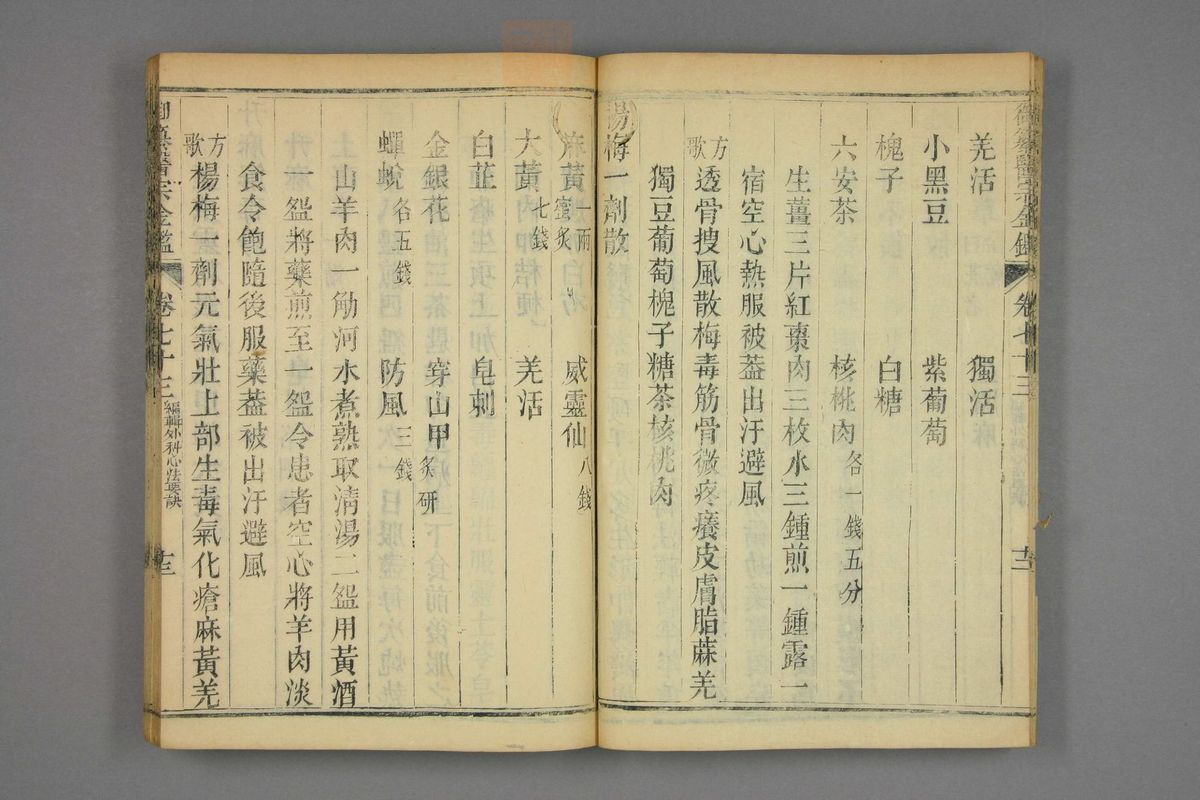 御纂醫宗金鑑 卷七十三 十二
羌活 獨活
小黑豆 紫葡萄
槐子 白糖
六安茶 核桃肉各一錢五分
生薑三片紅棗肉三枚水三鍾煎一鍾露一
宿空心熱服被葢出汗避風
方歌 透骨搜風散梅毒筋骨微疼癢皮膚脂蔴羌
獨豆葡萄槐子糖茶核桃肉
楊梅一劑散
麻黃一兩蜜炙 威靈仙八錢
大黃七錢 羌活
白芷 皂刺
金銀花 穿山甲炙研
蟬蛻各五錢 防風三錢
山羊肉一觔河水煮熟取淸湯二盌用黃酒
一盌將藥煎至一盌令患者空心將羊肉淡
食令飽隨後服藥葢被出汗避風
方歌 楊梅一劑元氣壯上部生毒氣化瘡麻黃羌
御纂醫宗金鑑 卷七十三 編輯外科心法要訣 十三